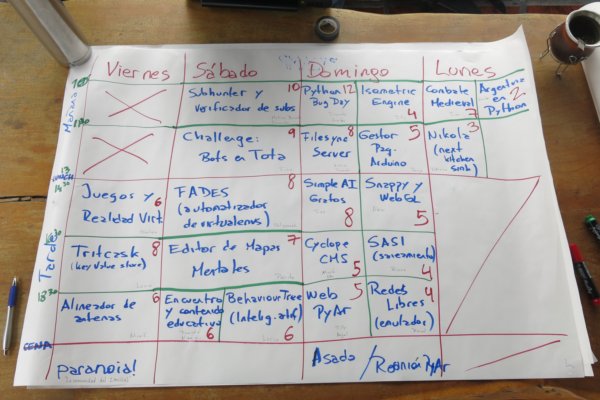 Viernes Sábado Domingo Lunes
Mañana
Subhunter y 10
verificador de subs
Python 12
Bug Day
Isometric
Engine
4
Combate
Medieval
7
Argentina
en
Python
2
Challenge: 9
Bots en Tota
Filesync 8
Server
Gestor 5
Paq.
Arduino
Nikola 3
(next
kitchen
sink)
Juegos y 6
Realidad Virt.
FADES 8
(automatizador
de virtualenvs)
Simple AI
Grafos
8
Snappy y
WebGL
5
Tarde
Tritcask 8
(key value store)
Editor de Mapas 7
Mentales
Cyclope
CMS
5
SASI
4
18:30
Alineador de 6
antenas
Encuentro
y contenido
educativo
6
Behaviour Tree
6
Web 5
PyAr
Redes 4
Libres
(emulador)
CENA
paranoia!
Asado / Reunión PyAr